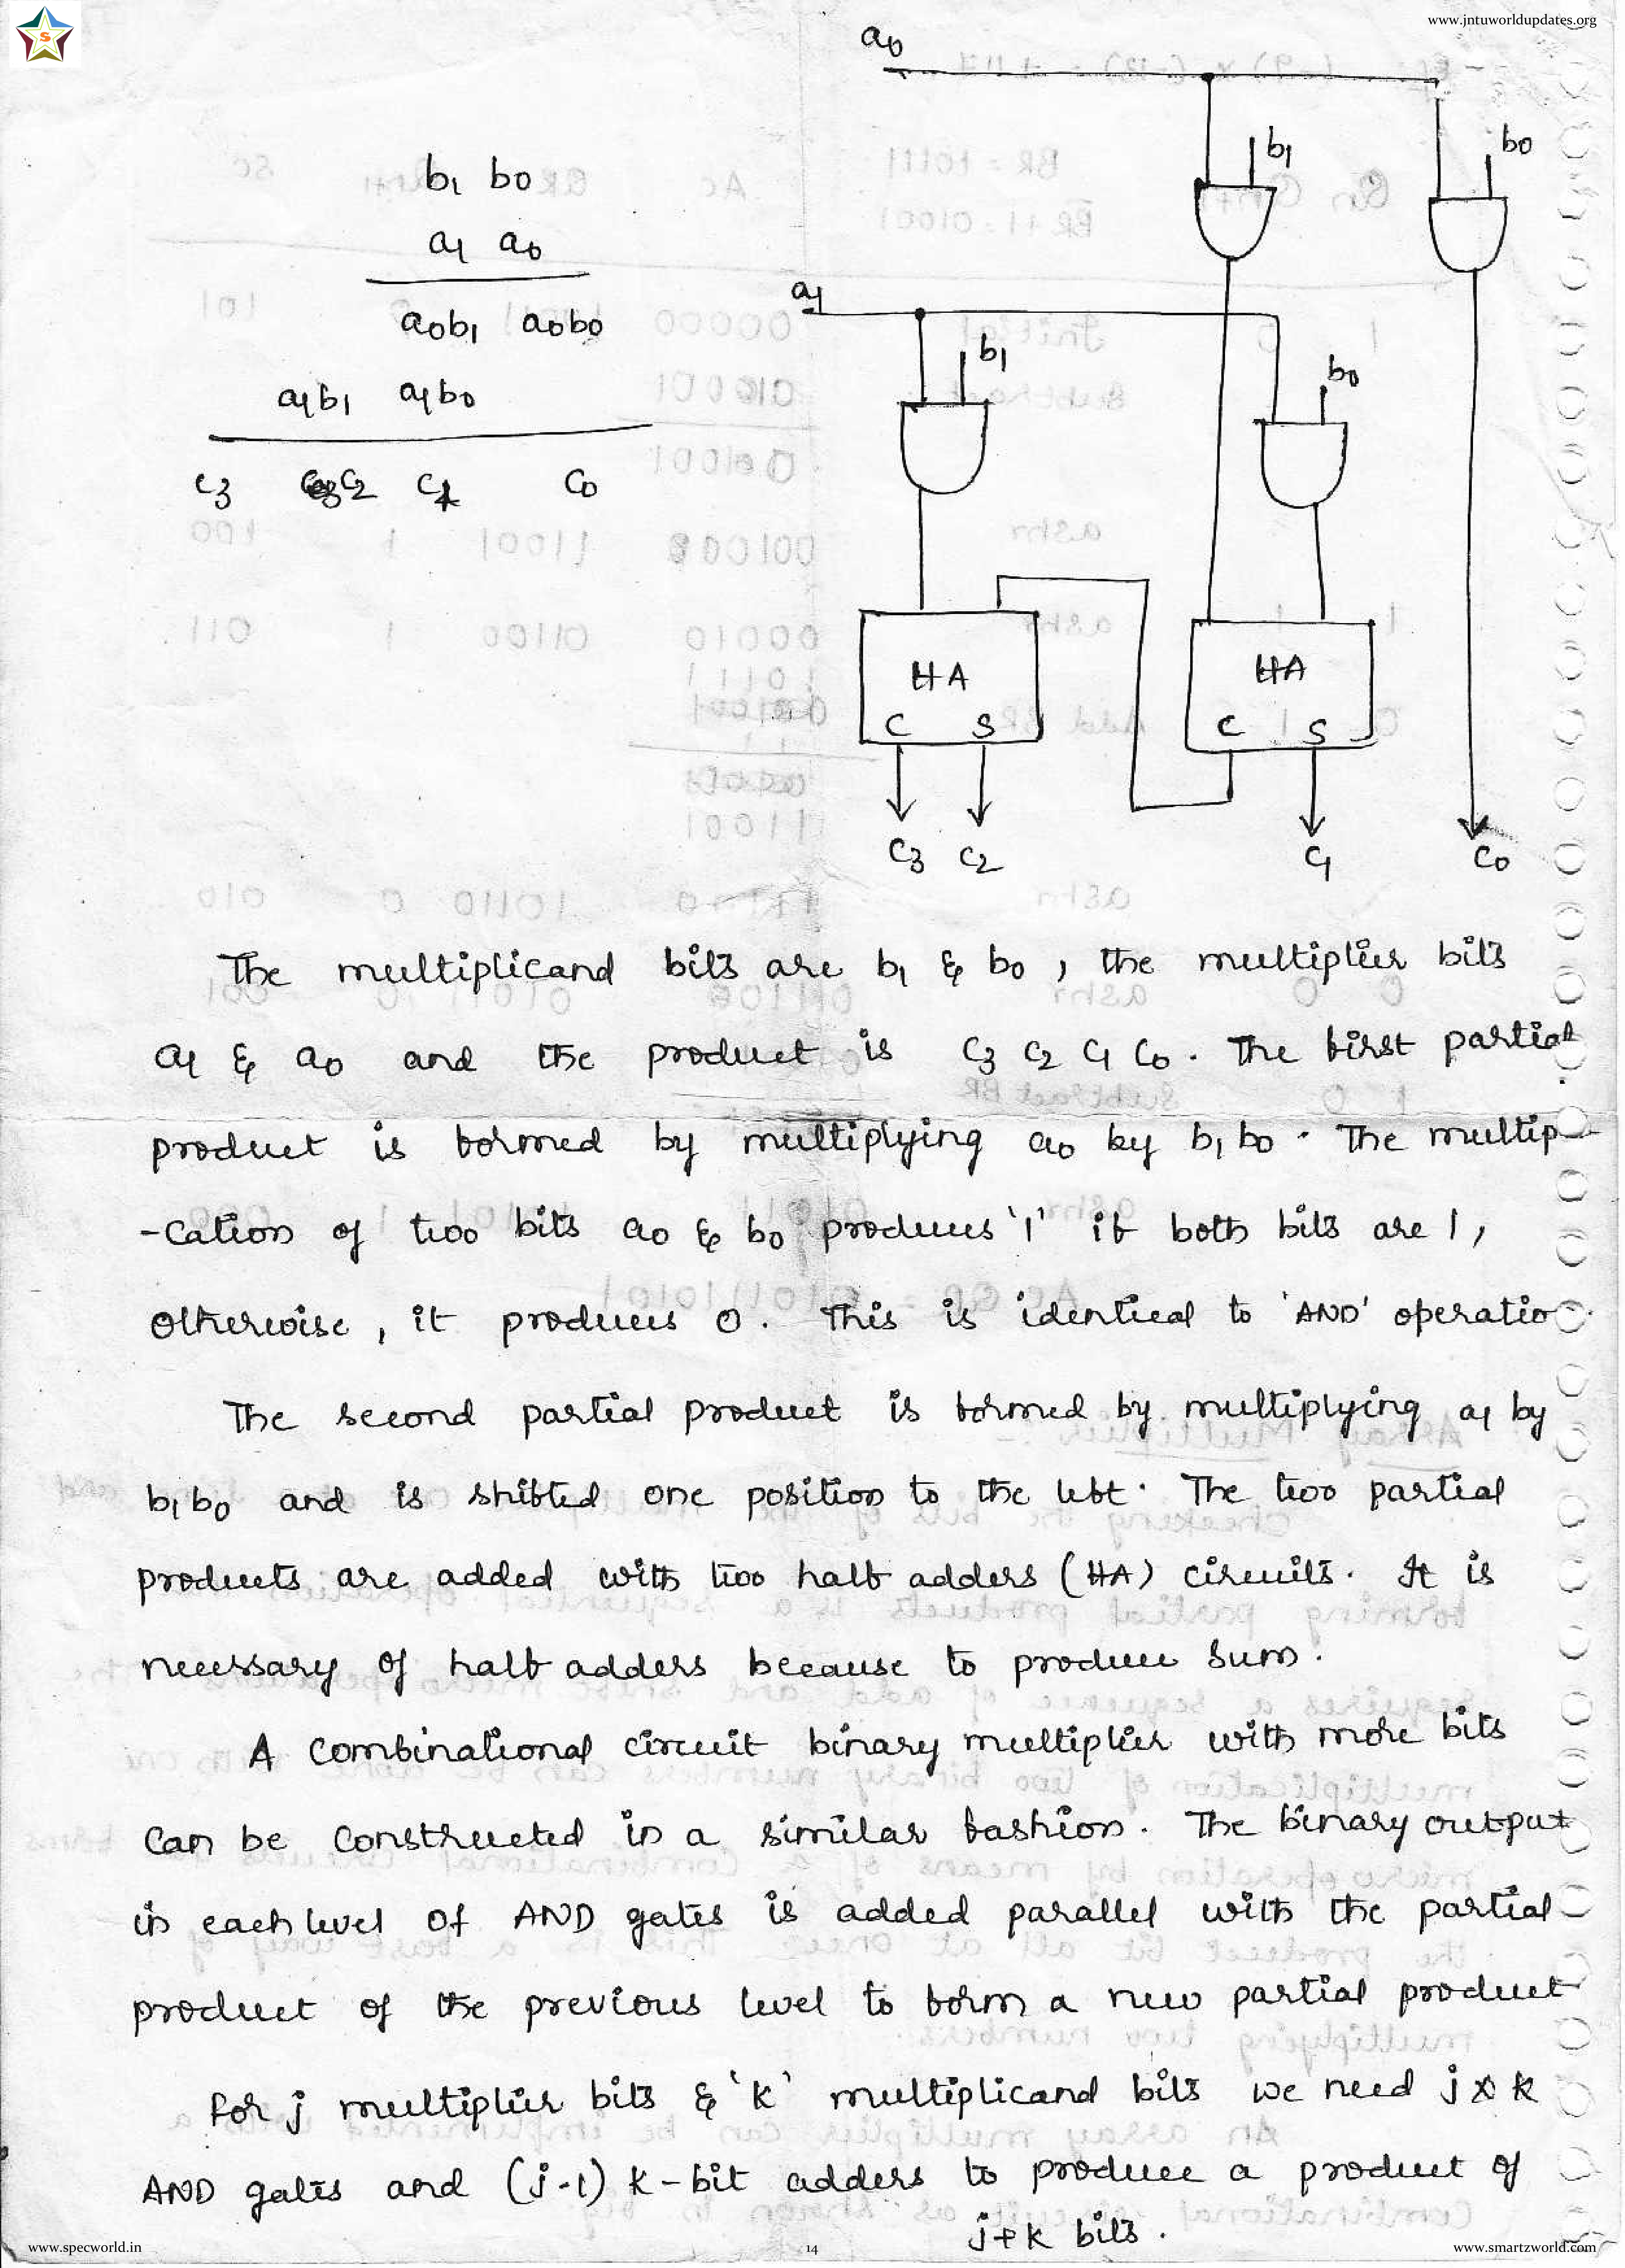 www.jntuworldupdates.org
S
a0
b1 b0
b1 b0
a1 a0
a1
a0b1 a0b0
b1
b0
a1b1 a1b0
c3 c2 c1 c0
HA HA
C S C S
c3 c2 c1 c0
The multiplicand bits are b1 & b0, the multiplier bits
a1 & a0 and the product is c3 c2 c1 c0. The first partial
product is formed by multiplying a0 by b1 b0. The multipli-
-cation of two bits a0 & b0 produces '1' if both bits are 1,
otherwise, it produces 0. This is identical to 'AND' operatio
The second partial product is formed by multiplying a1 by
b1 b0 and is shifted one position to the left. The two partial
products are added with two half adders (HA) circuits. It is
necessary of half adders because to produce sum.
A combinational circuit binary multiplier with more bits
can be constructed in a similar fashion. The binary output
in each level of AND gates is added parallel with the partial
product of the previous level to form a new partial product
for j multiplier bits & 'k' multiplicand bits we need j x k
AND gates and (j-1) k-bit adders to produce a product of
j+k bits.
www.specworld.in
14
www.smartzworld.com